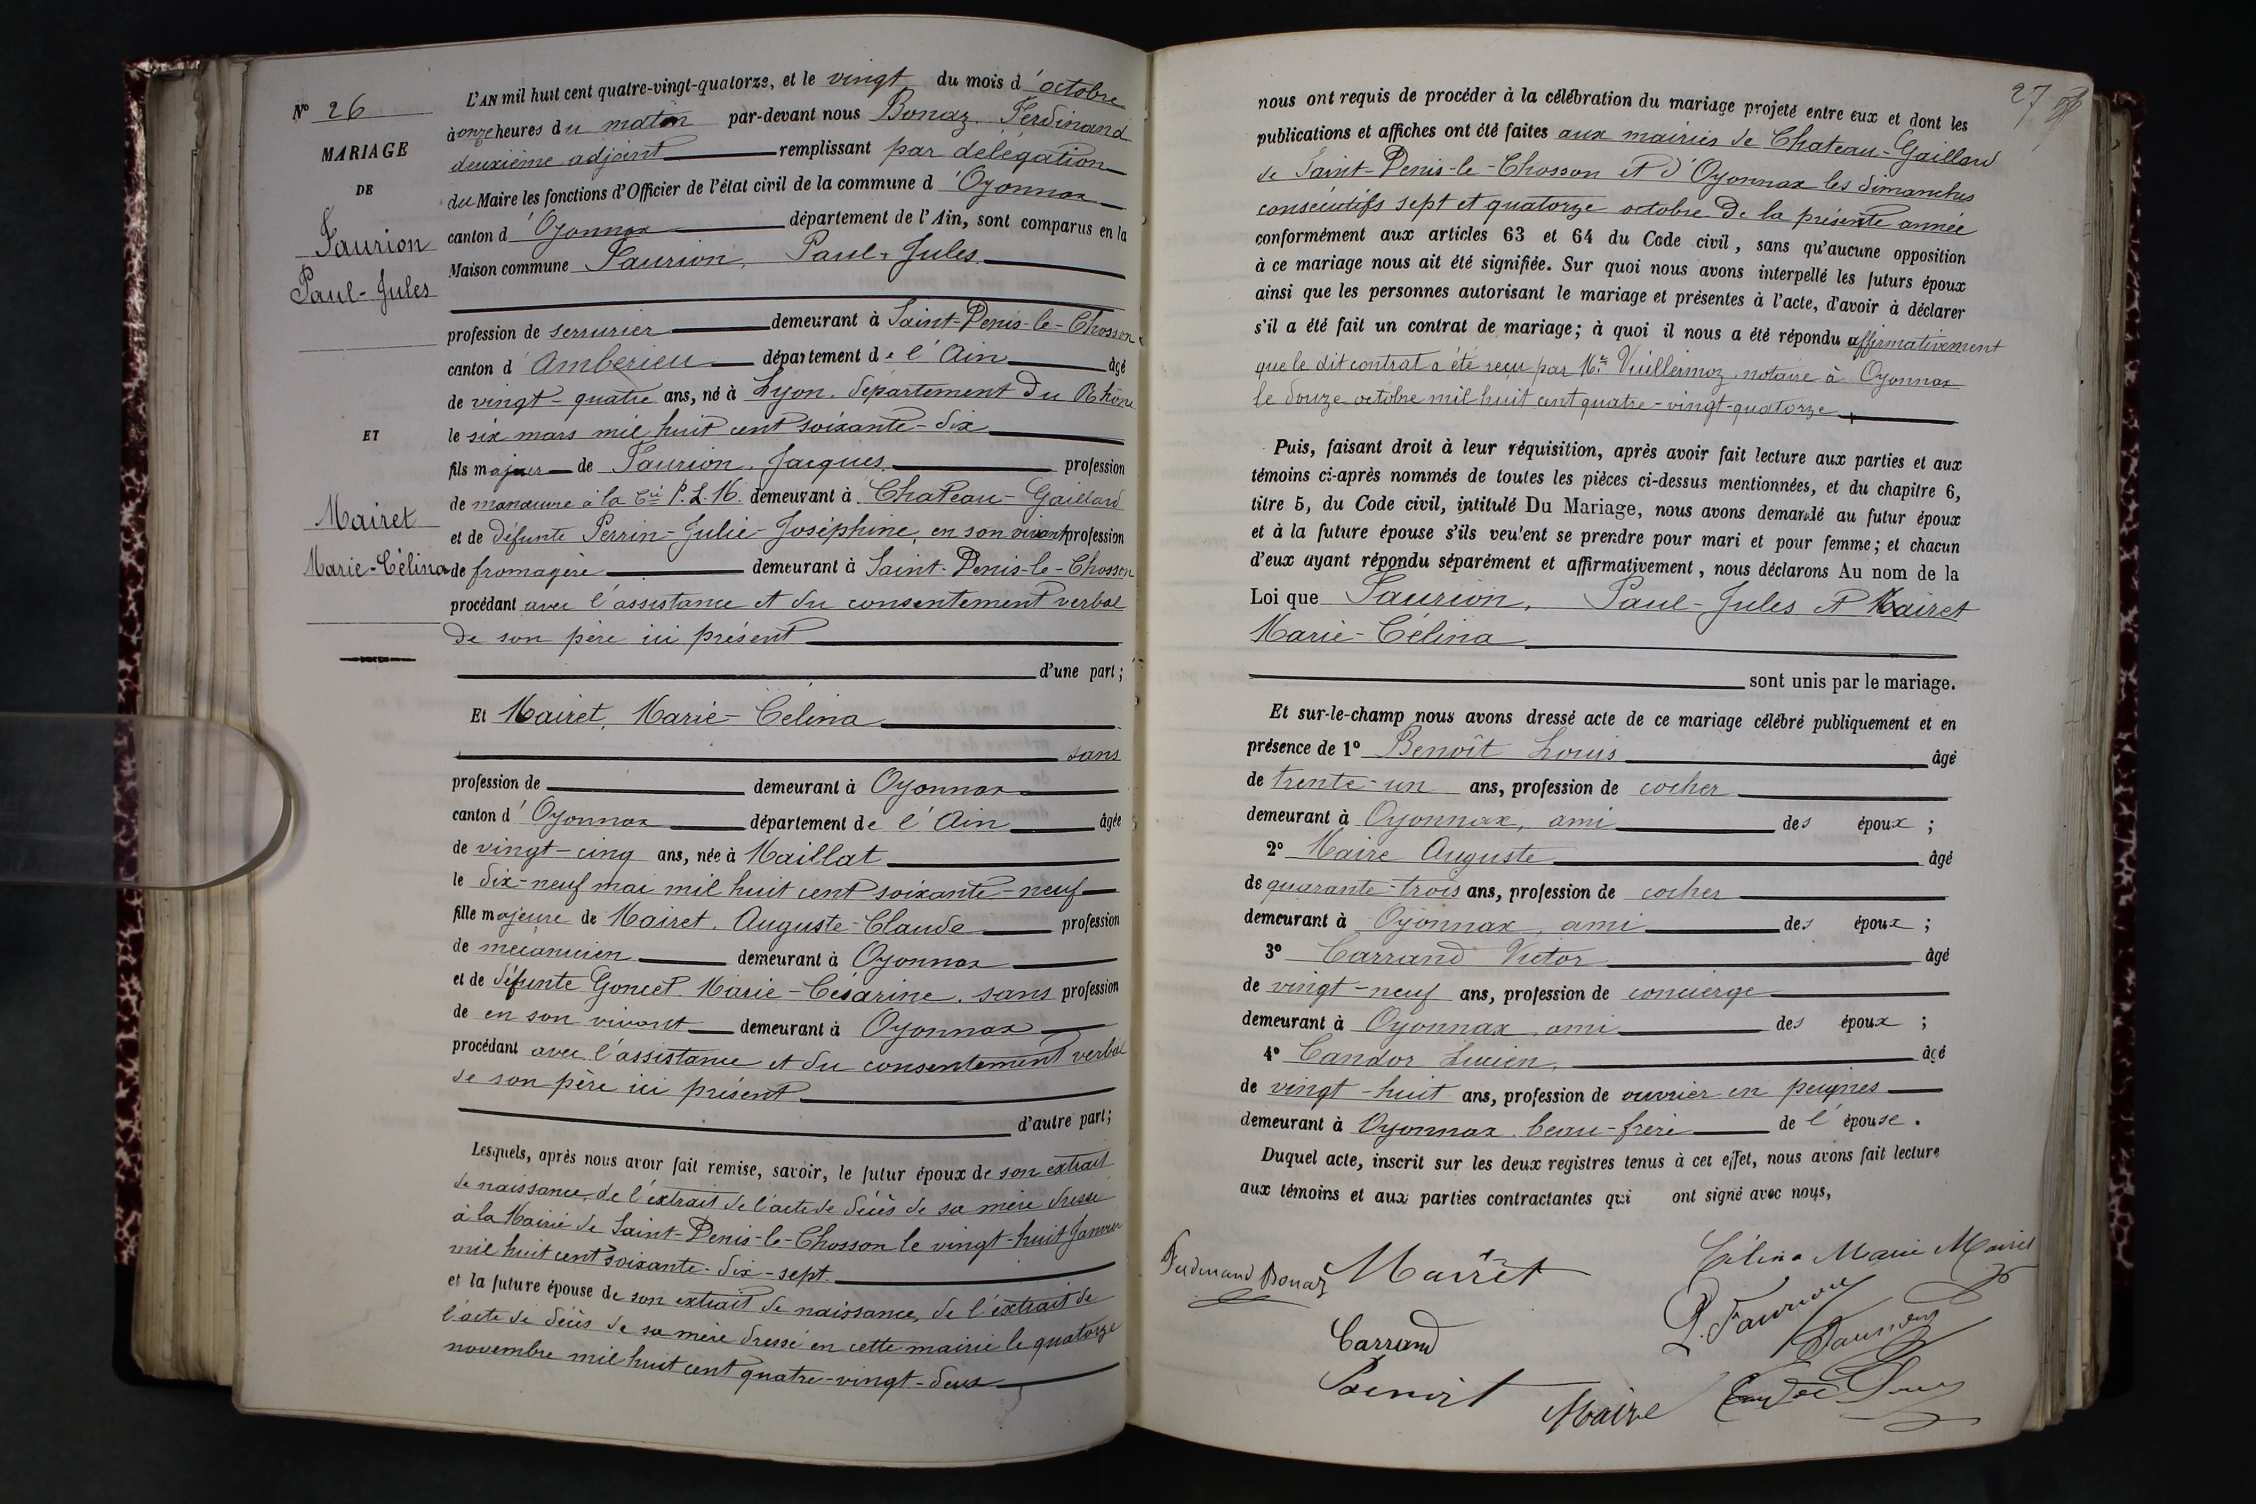 N° 26
MARIAGE
DE
Faurion
Paul-Jules
ET
Mairet
Marie-Célina
L'AN mil huit cent quatre-vingt-quatorze, et le vingt du mois d'octobre
à onze heures du matin par-devant nous Bonaz Ferdinand
deuxième adjoint remplissant par délégation
du Maire les fonctions d'Officier de l'état civil de la commune d'Oyonnax
canton d'Oyonnax département de l'Ain, sont comparus en la
Maison commune Faurion, Paul-Jules
profession de serrurier demeurant à Saint-Denis-le-Chosson
canton d'Ambérieu département de l'Ain âgé
de vingt-quatre ans, né à Lyon, département du Rhône
le six mars mil huit cent soixante-dix
fils majeur de Faurion, Jacques profession
de manœuvre à la Cie P.L.M. demeurant à Chateau-Gaillard
et de défunte Perrin-Julie-Joséphine, en son vivant profession
de fromagère demeurant à Saint-Denis-le-Chosson
procédant avec l'assistance et du consentement verbal
de son père ici présent
d'une part;
Et Mairet, Marie-Célina
sans
profession de demeurant à Oyonnax
canton d'Oyonnax département de l'Ain âgée
de vingt-cinq ans, née à Maillat
le dix-neuf mai mil huit cent soixante-neuf
fille majeure de Mairet, Auguste-Claude profession
de mécanicien demeurant à Oyonnax
et de défunte Goncet Marie-Césarine, sans profession
de en son vivant demeurant à Oyonnax
procédant avec l'assistance et du consentement verbal
de son père ici présent
d'autre part;
Lesquels, après nous avoir fait remise, savoir, le futur époux de son extrait
de naissance, de l'extrait de l'acte de décès de sa mère dressé
à la Mairie de Saint-Denis-le-Chosson le vingt-huit Janvier
mil huit cent soixante-dix-sept.
et la future épouse de son extrait de naissance, de l'extrait de
l'acte de décès de sa mère dressé en cette mairie le quatorze
novembre mil huit cent quatre-vingt-deux
27
nous ont requis de procéder à la célébration du mariage projeté entre eux et dont les
publications et affiches ont été faites aux mairies de Chateau-Gaillard
de Saint-Denis-le-Chosson et d'Oyonnax les dimanches
consécutifs sept et quatorze octobre de la présente année
conformément aux articles 63 et 64 du Code civil, sans qu'aucune opposition
à ce mariage nous ait été signifiée. Sur quoi nous avons interpellé les futurs époux
ainsi que les personnes autorisant le mariage et présentes à l'acte, d'avoir à déclarer
s'il a été fait un contrat de mariage; à quoi il nous a été répondu affirmativement
que le dit contrat a été reçu par Me Vuillermoz notaire à Oyonnax
le douze octobre mil huit cent quatre-vingt-quatorze
Puis, faisant droit à leur réquisition, après avoir fait lecture aux parties et aux
témoins ci-après nommés de toutes les pièces ci-dessus mentionnées, et du chapitre 6,
titre 5, du Code civil, intitulé Du Mariage, nous avons demandé au futur époux
et à la future épouse s'ils veulent se prendre pour mari et pour femme; et chacun
d'eux ayant répondu séparément et affirmativement, nous déclarons Au nom de la
Loi que Faurion, Paul-Jules et Mairet
Marie-Célina
sont unis par le mariage.
Et sur-le-champ nous avons dressé acte de ce mariage célébré publiquement et en
présence de 1° Benoît Louis âgé
de trente-un ans, profession de cocher
demeurant à Oyonnax, ami des époux ;
2° Maire Auguste âgé
de quarante-trois ans, profession de cocher
demeurant à Oyonnax, ami des époux ;
3° Carrand Victor âgé
de vingt-neuf ans, profession de concierge
demeurant à Oyonnax, ami des époux ;
4° Candor Lucien, âgé
de vingt-huit ans, profession de ouvrier en peignes
demeurant à Oyonnax, beau-frère de l'épouse.
Duquel acte, inscrit sur les deux registres tenus à cet effet, nous avons fait lecture
aux témoins et aux parties contractantes qui ont signé avec nous,
Ferdinand Bonaz Mairet Célina Marie Mairet
P. Faurion
Faurion
Carrand
Benoit Maire